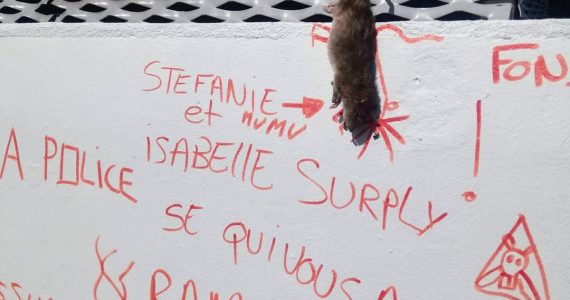 STEFANIE
et MUMU
FON
A POLICE
ISABELLE SURPLY !
SE QUI VOUS A